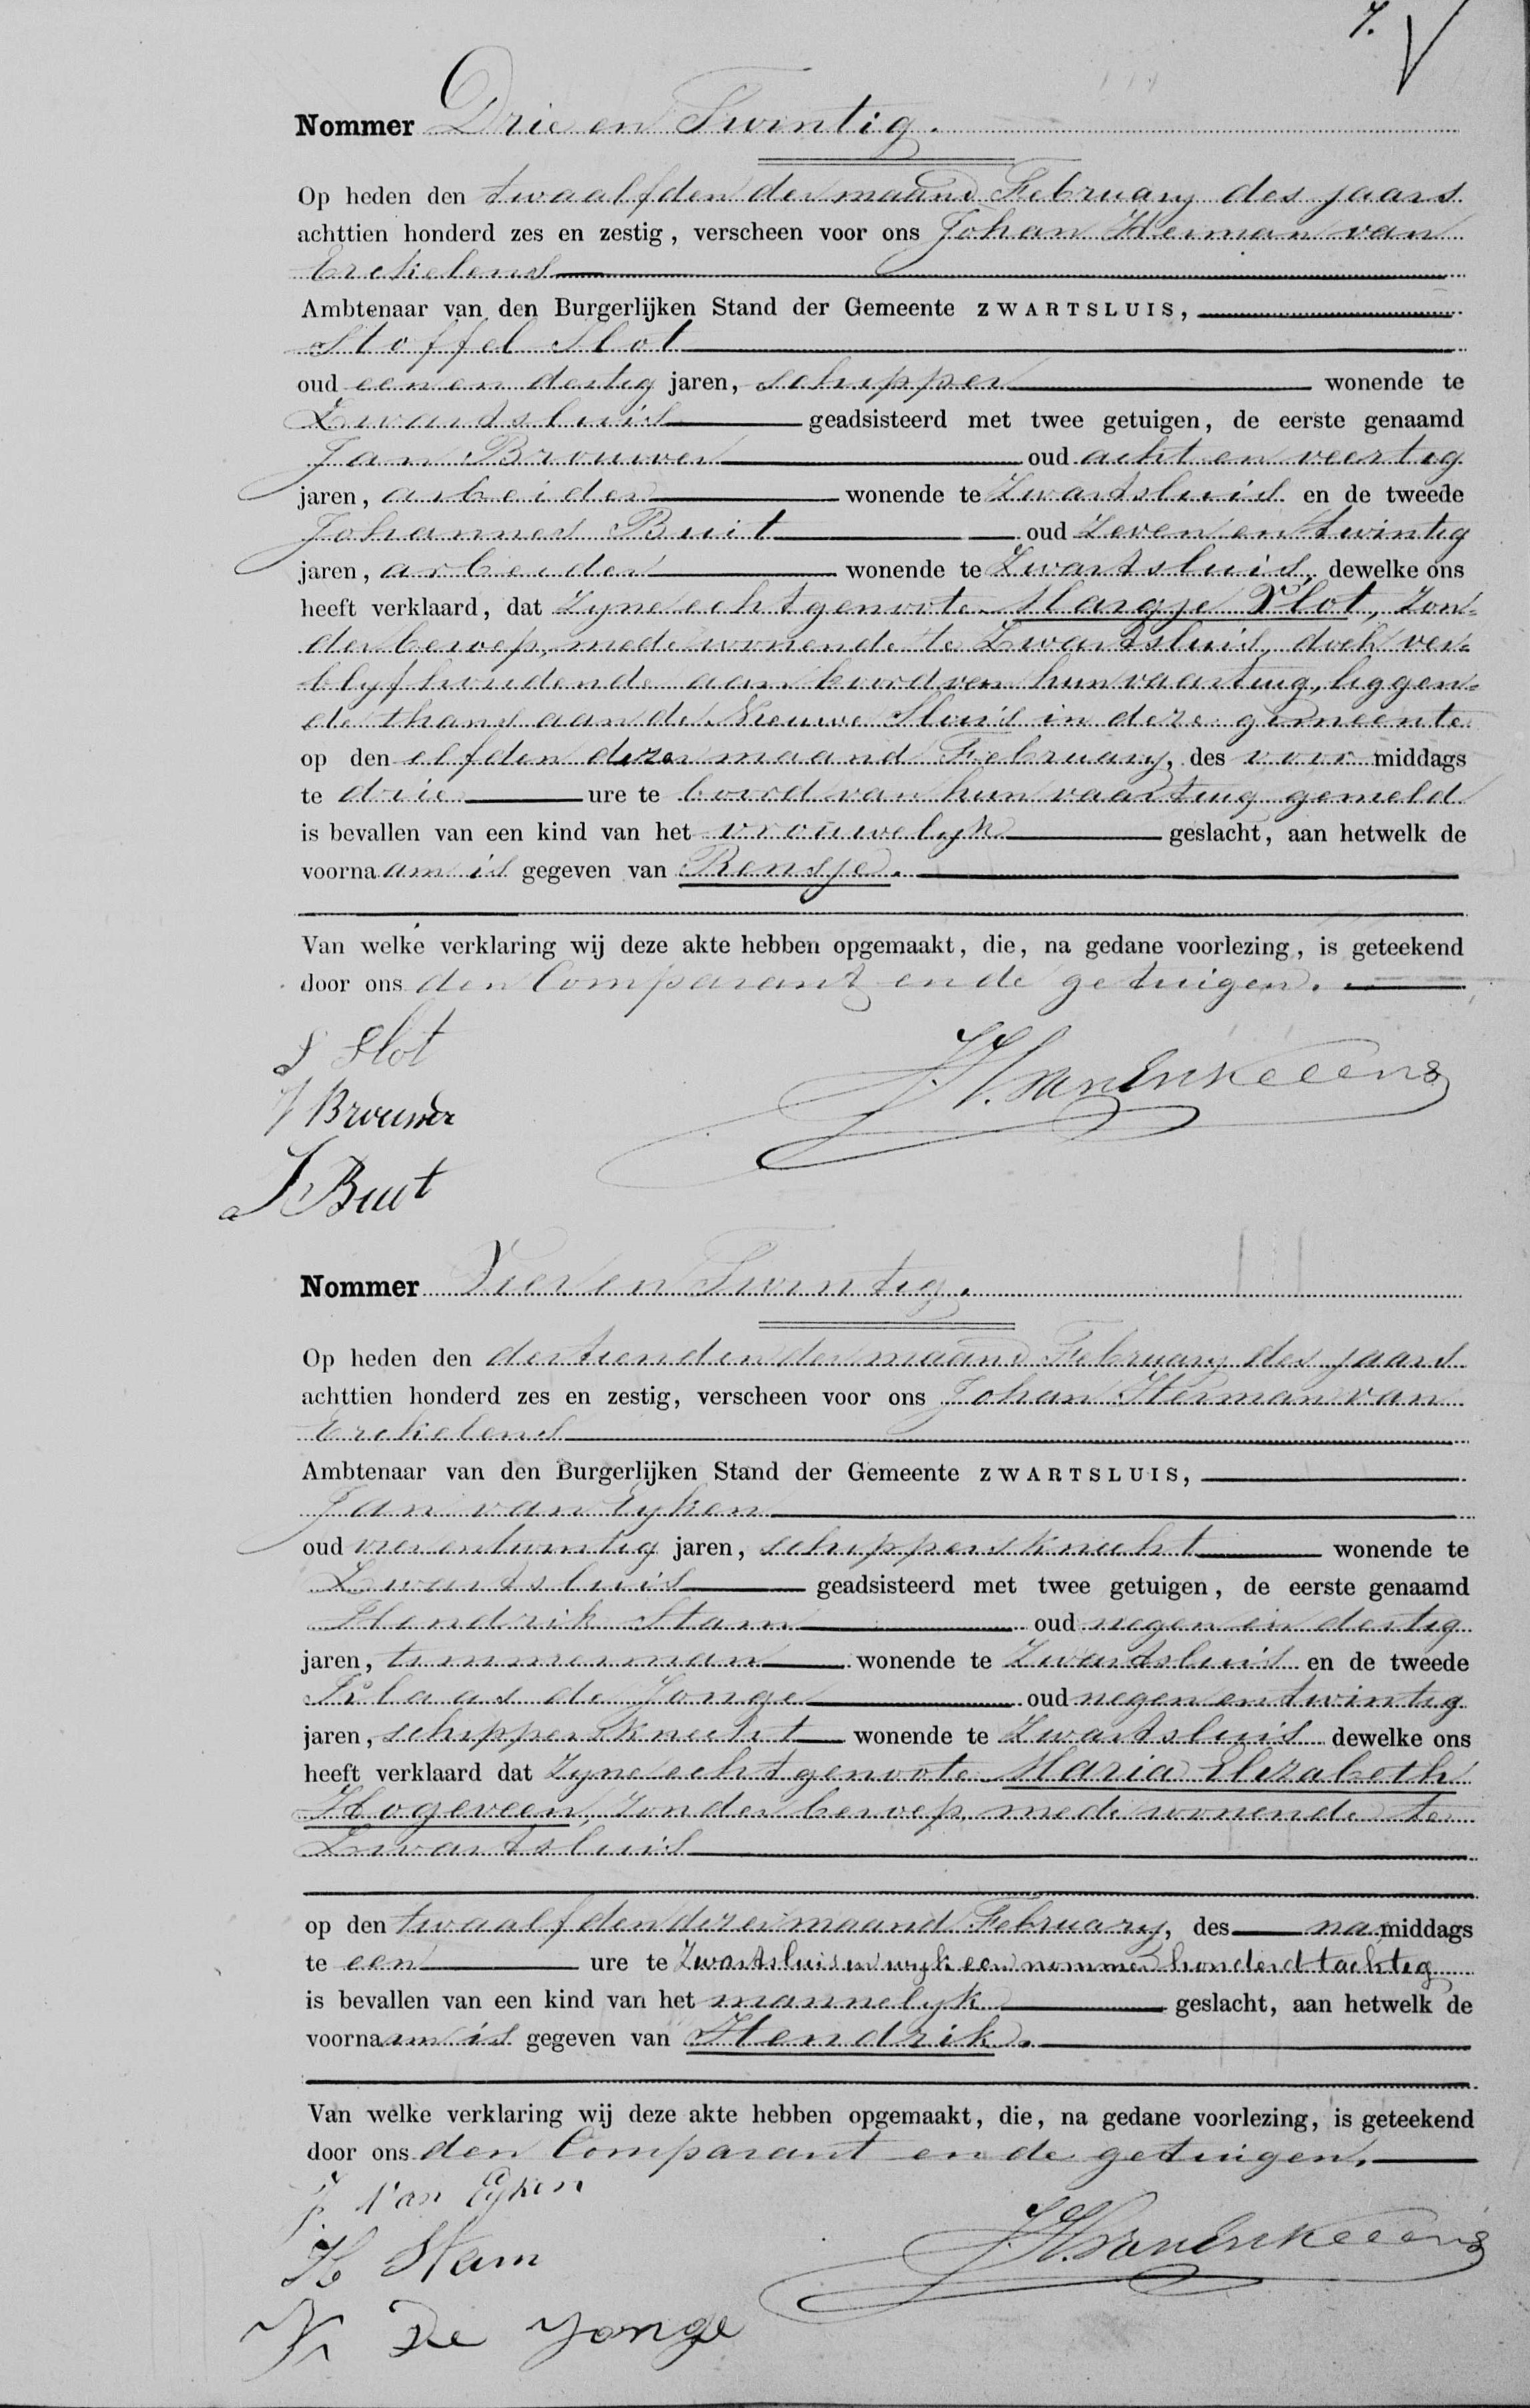 7.
Nommer Drie en Twintig.
Op heden den twaalfden der maand February des jaars
achttien honderd zes en zestig, verscheen voor ons Johan Herman van
Erckelens
Ambtenaar van den Burgerlijken Stand der Gemeente ZWARTSLUIS,
Stoffel Slot
oud een en dertig jaren, schipper wonende te
Zwartsluis geadsisteerd met twee getuigen, de eerste genaamd
Jan Brouwer oud acht en veertig
jaren, arbeider wonende te Zwartsluis en de tweede
Johannes Buit oud zeven en twintig
jaren, arbeider wonende te Zwartsluis, dewelke ons
heeft verklaard, dat zyne echtgenoote Margje Slot, zon=
der beroep, mede wonende te Zwartsluis, doch ver=
blyfhoudende aan boord van hun vaartuig, liggen=
de thans aan de Nieuwe Sluis in deze gemeente
op den elfden dezer maand February, des voor middags
te drie ure te boord van hun vaartuig gemeld
is bevallen van een kind van het vrouwelyk geslacht, aan hetwelk de
voornaam is gegeven van Rensje.
Van welke verklaring wij deze akte hebben opgemaakt, die, na gedane voorlezing, is geteekend
door ons den Comparant en de getuigen.
S Slot
J Brouwer
J Buit
J.H. van Erckelens
Nommer Vier en Twintig.
Op heden den dertienden der maand February des jaars
achttien honderd zes en zestig, verscheen voor ons Johan Herman van
Erckelens
Ambtenaar van den Burgerlijken Stand der Gemeente ZWARTSLUIS,
Jan van Eyken
oud vier en twintig jaren, schippersknecht wonende te
Zwartsluis geadsisteerd met twee getuigen, de eerste genaamd
Hendrik Stam oud negen en dertig
jaren, timmerman wonende te Zwartsluis en de tweede
Klaas de Jonge oud negen en twintig
jaren, schippersknecht wonende te Zwartsluis dewelke ons
heeft verklaard dat zyne echtgenoote Maria Elizabeth
Hogeveen, zonder beroep, mede wonende te
Zwartsluis
op den twaalfden dezer maand February, des na middags
te een ure te Zwartsluis in wyk een nommer honderd tachtig
is bevallen van een kind van het mannelyk geslacht, aan hetwelk de
voornaam is gegeven van Hendrik.
Van welke verklaring wij deze akte hebben opgemaakt, die, na gedane voorlezing, is geteekend
door ons den Comparant en de getuigen.
J. Van Eyken
H Stam
K De Jonge
J.H. van Erckelens